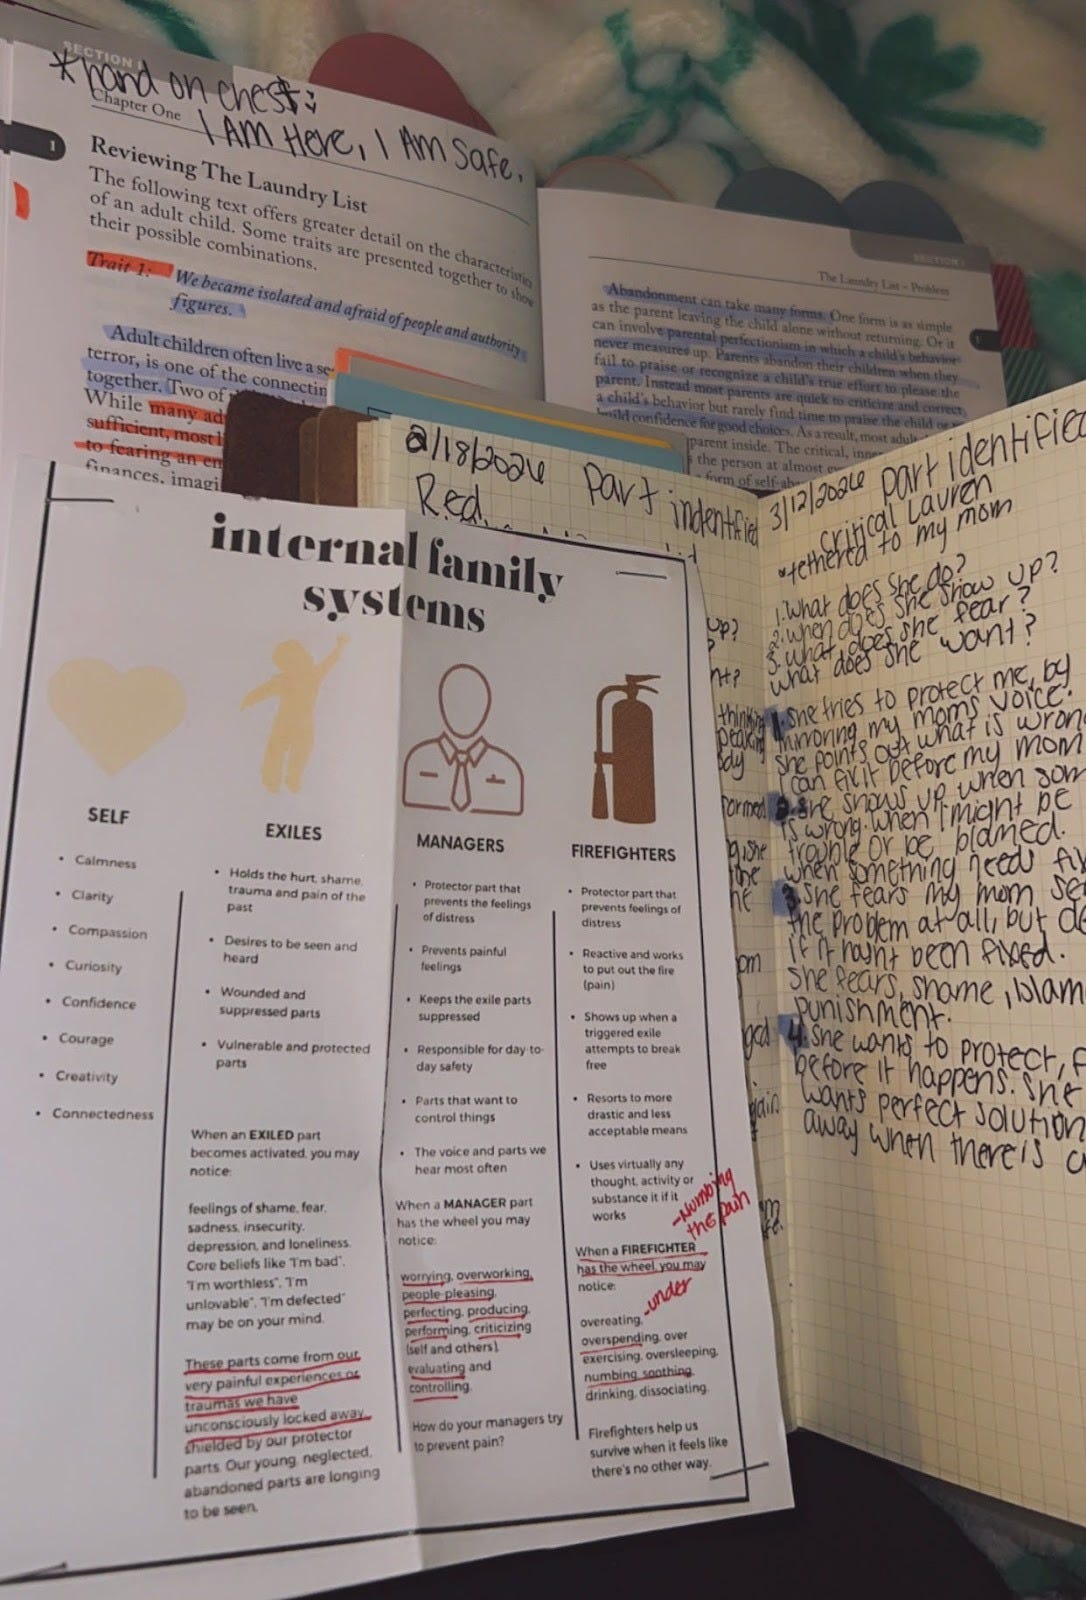 SECTION I
*hand on chest:
Chapter One
I AM Here, I AM Safe.
1
Reviewing The Laundry List
The following text offers greater detail on the characteristics
of an adult child. Some traits are presented together to show
their possible combinations.
Trait 1: We became isolated and afraid of people and authority
figures.
Adult children often live a se
terror, is one of the connectin
together. Two of
While many ad
sufficient, most
to fearing an en
finances, imagi
SECTION I
The Laundry List – Problem
Abandonment can take many forms. One form is as simple
as the parent leaving the child alone without returning. Or it
can involve parental perfectionism in which a child's behavior
never measures up. Parents abandon their children when they
fail to praise or recognize a child's true effort to please the
parent. Instead most parents are quick to criticize and correct
a child's behavior but rarely find time to praise the child or
build confidence for good choices. As a result, most adult
parent inside. The critical, inne
the person at almost e
form of self-ab
2/18/2026 Part indentified
Red
up?
nt?
thinking
peaking
ody
formed
she
om
ged
gain
3/12/2026 part identified
critical Lauren
*tethered to my mom
1. What does she do?
2. when does she show up?
3. what does she fear?
what does she want?
1. She tries to protect me, by
mirroring my moms voice.
she points out what is wron
I can fix it before my mom
2. she shows up when som
is wrong. when I might be
trouble or be blamed.
when something needs fi
3. she fears my mom se
the problem at all, but
if it hasnt been fixed.
she fears, shame, blam
punishment.
4. she wants to protect,
before it happens. She
wants perfect solution
away when there is
internal family
systems
SELF
• Calmness
• Clarity
• Compassion
• Curiosity
• Confidence
• Courage
• Creativity
• Connectedness
EXILES
• Holds the hurt, shame,
trauma and pain of the
past
• Desires to be seen and
heard
• Wounded and
suppressed parts
• Vulnerable and protected
parts
When an EXILED part
becomes activated, you may
notice:
feelings of shame, fear,
sadness, insecurity,
depression, and loneliness.
Core beliefs like "I'm bad",
"I'm worthless", "I'm
unlovable", "I'm defected"
may be on your mind.
These parts come from our
very painful experiences or
traumas we have
unconsciously locked away,
shielded by our protector
parts. Our young, neglected,
abandoned parts are longing
to be seen.
MANAGERS
• Protector part that
prevents the feelings
of distress
• Prevents painful
feelings
• Keeps the exile parts
suppressed
• Responsible for day-to-
day safety
• Parts that want to
control things
• The voice and parts we
hear most often
When a MANAGER part
has the wheel you may
notice:
worrying, overworking,
people-pleasing,
perfecting, producing,
performing, criticizing
(self and others),
evaluating and
controlling.
How do your managers try
to prevent pain?
FIREFIGHTERS
• Protector part that
prevents feelings of
distress
• Reactive and works
to put out the fire
(pain)
• Shows up when a
triggered exile
attempts to break
free
• Resorts to more
drastic and less
acceptable means
• Uses virtually any
thought, activity or
substance it if it
works
-Numbing
the pain
When a FIREFIGHTER
has the wheel, you may
notice:
-under
overeating,
overspending, over
exercising, oversleeping,
numbing, soothing,
drinking, dissociating.
Firefighters help us
survive when it feels like
there's no other way.